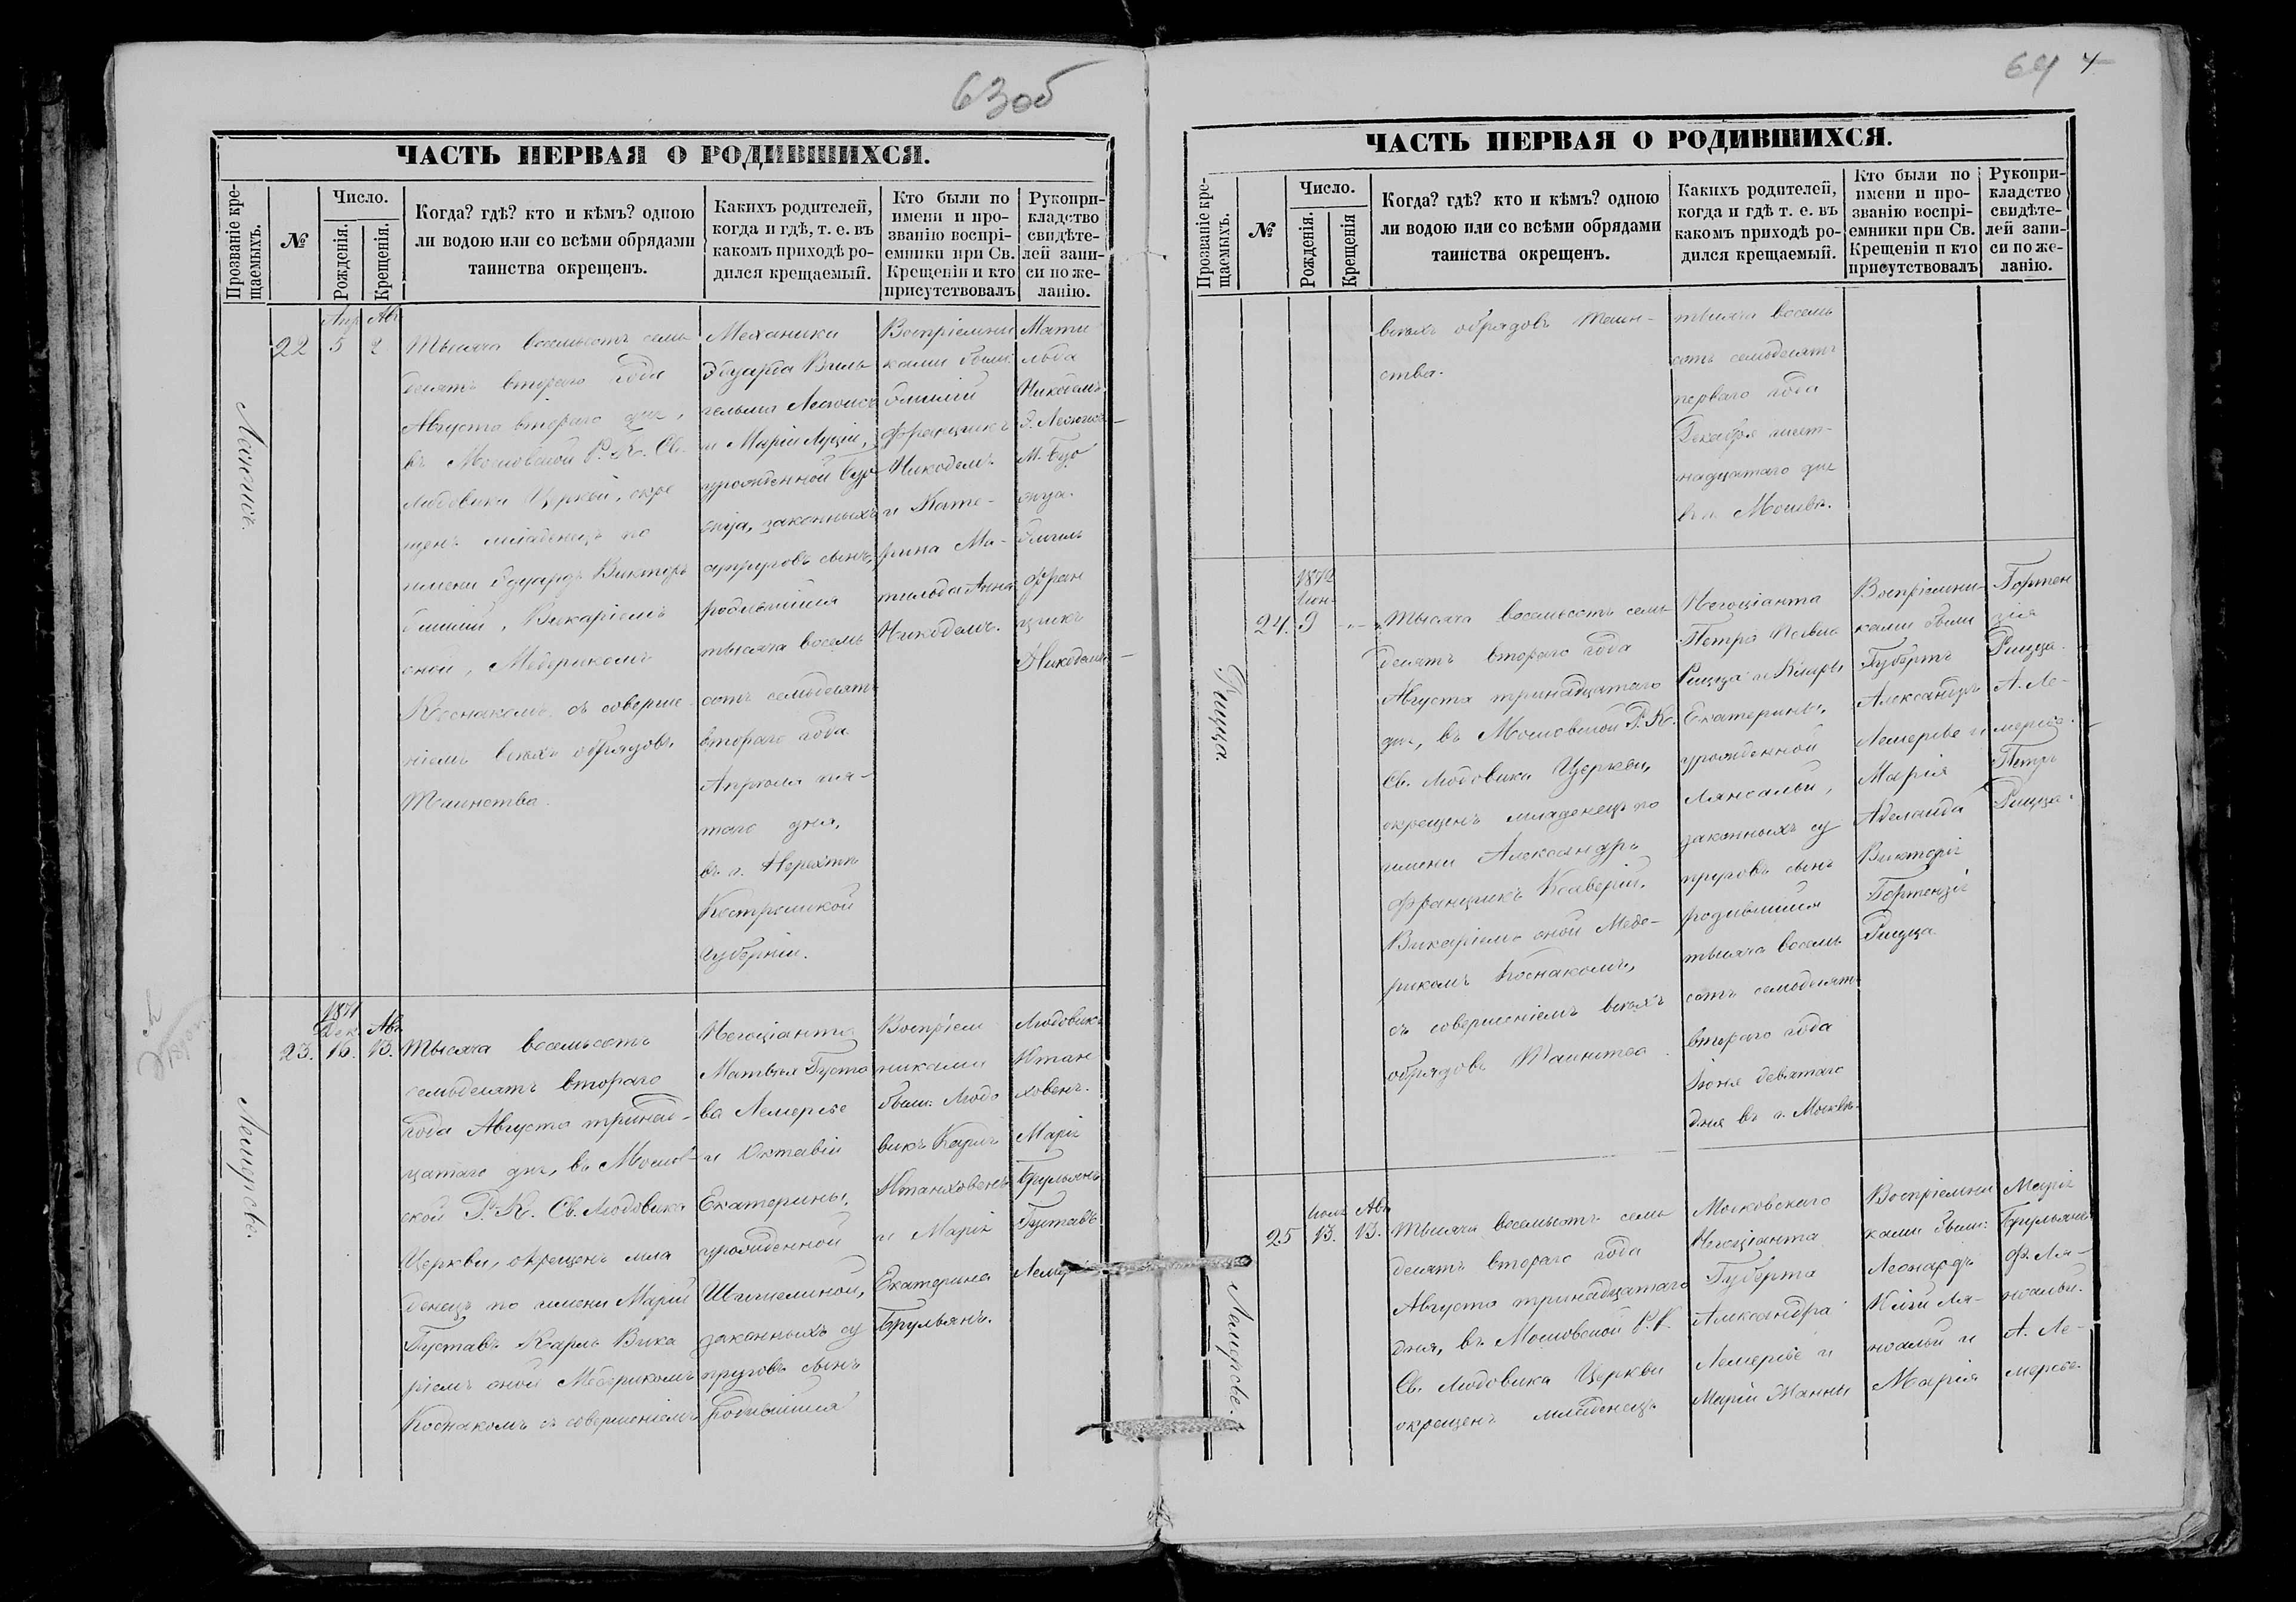 63об
ЧАСТЬ ПЕРВАЯ О РОДИВШИХСЯ.
Прозваніе кре-
щаемыхъ.
№
Число.
Рожденія.
Крещенія.
Когда? гдѣ? кто и кѣмъ? одною
ли водою или со всѣми обрядами
таинства окрещенъ.
Какихъ родителей,
когда и гдѣ, т. е. въ
какомъ приходѣ ро-
дился крещаемый.
Кто были по
имени и про-
званію воспрі-
емники при Св.
Крещеніи и кто
присутствовалъ
Рукопри-
кладство
свидѣте-
лей запи-
си по же-
ланію.
22
Апр
5
Авг
2
Тысяча восемьсотъ семь
десятъ второго года
Августа второго дня,
въ Московской Р. К. Св.
Людовика Церкви, окре
щенъ младенецъ по
имени Эдуардъ Викторъ
Викаріемъ
оной, Медерикомъ
Коснакомъ съ соверше
ніемъ всѣхъ обрядовъ
Таинства.
Механика
Эдуарда Виль
гельма
и Маріи Луціи,
урожденной
законныхъ
супруговъ сынъ,
родившійся
тысяча восемь
сотъ семьдесятъ
второго года
Апрѣля пя-
таго дня,
въ г. Нерехтѣ
Костромской
Губерніи.
Воспріемни
ками были:
Эмилій
Францискъ
Никодемъ
и Кате-
рина Ма-
тильда Анна
Никодемъ.
Мати
льда
Никодемъ
Э.
М. Бур
Эмиль
Фран
цискъ
Никодемъ
23.
1871
Дек.
16.
Авг
13.
Лемерсье.
Тысяча восемьсотъ
семьдесятъ второго
года Августа тринад-
цатаго дня, въ Москов-
ской Р. К. Св. Людовика
Церкви, окрещенъ мла
денецъ по имени Марій
Густавъ Карлъ Вика
ріемъ оной Медерикомъ
Коснакомъ съ совершеніемъ
Негоціанта
Матвѣя Густа
ва Лемерсье
и Октавіи
Екатерины,
урожденной
законныхъ су
пруговъ сынъ
родившійся
Воспріем
никами
были: Людо
викъ Карлъ
Штанховенъ
и Марія
Екатерина
Брульянъ.
Людовикъ
Штан
ховенъ.
Марія
Брульянъ
Густавъ
Лемерсье
64
4
ЧАСТЬ ПЕРВАЯ О РОДИВШИХСЯ.
Прозваніе кре-
щаемыхъ.
№
Число.
Рожденія.
Крещенія
Когда? гдѣ? кто и кѣмъ? одною
ли водою или со всѣми обрядами
таинства окрещенъ.
Какихъ родителей,
когда и гдѣ т. е. въ
какомъ приходѣ ро-
дился крещаемый.
Кто были по
имени и про-
званію воспрі-
емники при Св.
Крещеніи и кто
присутствовалъ
Рукопри-
кладство
свидѣте-
лей запи-
си по же-
ланію.
всѣхъ обрядовъ Таин-
ства.
тысяча восемь
сотъ семьдесятъ
перваго года
Декабря шест-
надцатаго дня
въ г. Москвѣ.
24.
1872
Іюн
9
Рицца.
Тысяча восемьсотъ семь
десятъ второго года
Августа тринадцатаго
дня, въ Московской Р. К.
Св. Людовика Церкви,
окрещенъ младенецъ по
имени Александръ
Францискъ Ксаверій,
Викаріемъ оной Меде-
рикомъ Коснакомъ,
съ совершеніемъ всѣхъ
обрядовъ Таинства.
Негоціанта
Петра
Рицца и Клары
Екатерины,
урожденной
законныхъ су
пруговъ сынъ
родившійся
тысяча восемь
сотъ семьдесятъ
второго года
Іюня девятаго
дня въ г. Москвѣ.
Воспріемни-
ками были
Губертъ
Александръ
Лемерсье и
Марія
Аделаида
Викторія
Гортензія
Рицца
Гортен
зія
Рицца.
А. Ле-
мерсье.
Петръ
Рицца.
25
Іюля
13.
Авг
13.
Лемерсье.
Тысяча восемьсотъ семь
десятъ второго года
Августа тринадцатаго
дня, въ Московской Р. К.
Св. Людовика Церкви
окрещенъ младенецъ
Московскаго
Негоціанта
Губерта
Александра
Лемерсье и
Маріи Жанны
Воспріемни
ками были:
Леонардъ
и
Марія
Марія
Брульянъ
А. Ле-
мерсье.